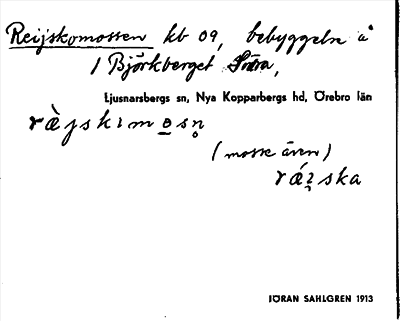 Reijskomossen kb 09, bebyggelse å
1 Björkberget Södra,
Ljusnarsbergs sn, Nya Kopparbergs hd, Örebro län
(mosse även)
JÖRAN SAHLGREN 1913